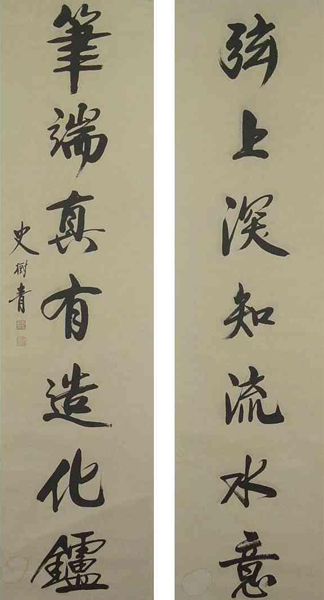 弦上深知流水意
筆端真有造化鑪
史樹青